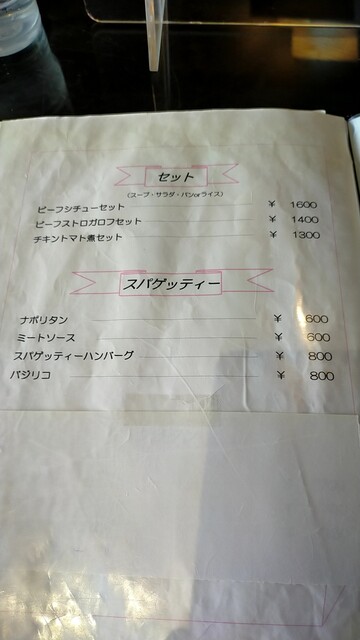 セット
(スープ・サラダ・パンorライス)
ビーフシチューセット ¥ 1600
ビーフストロガロフセット ¥ 1400
チキントマト煮セット ¥ 1300
スパゲッティー
ナポリタン ¥ 600
ミートソース ¥ 600
スパゲッティーハンバーグ ¥ 800
バジリコ ¥ 800